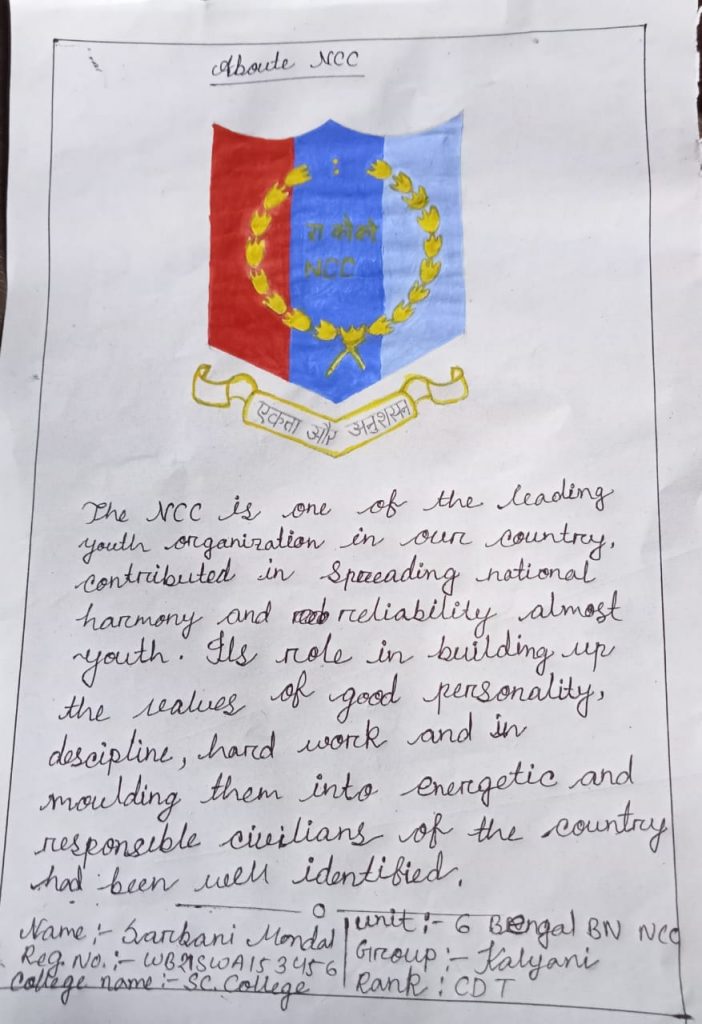 Aboute NCC
रा कोको
NCC
एकता और अनुशासन
The NCC is one of the leading
youth organization in our country,
contributed in Spreading national
harmony and reliability almost
youth. Its role in building up
the values of good personality,
descipline, hard work and in
moulding them into energetic and
responsible civilians of the country
had been well identified.
Name:- Sarbani Mondal
Reg. No.:- WB21SWA153456
College name:- SC. College
unit:- 6 Bengal BN NCC
Group:- Kalyani
Rank: CDT